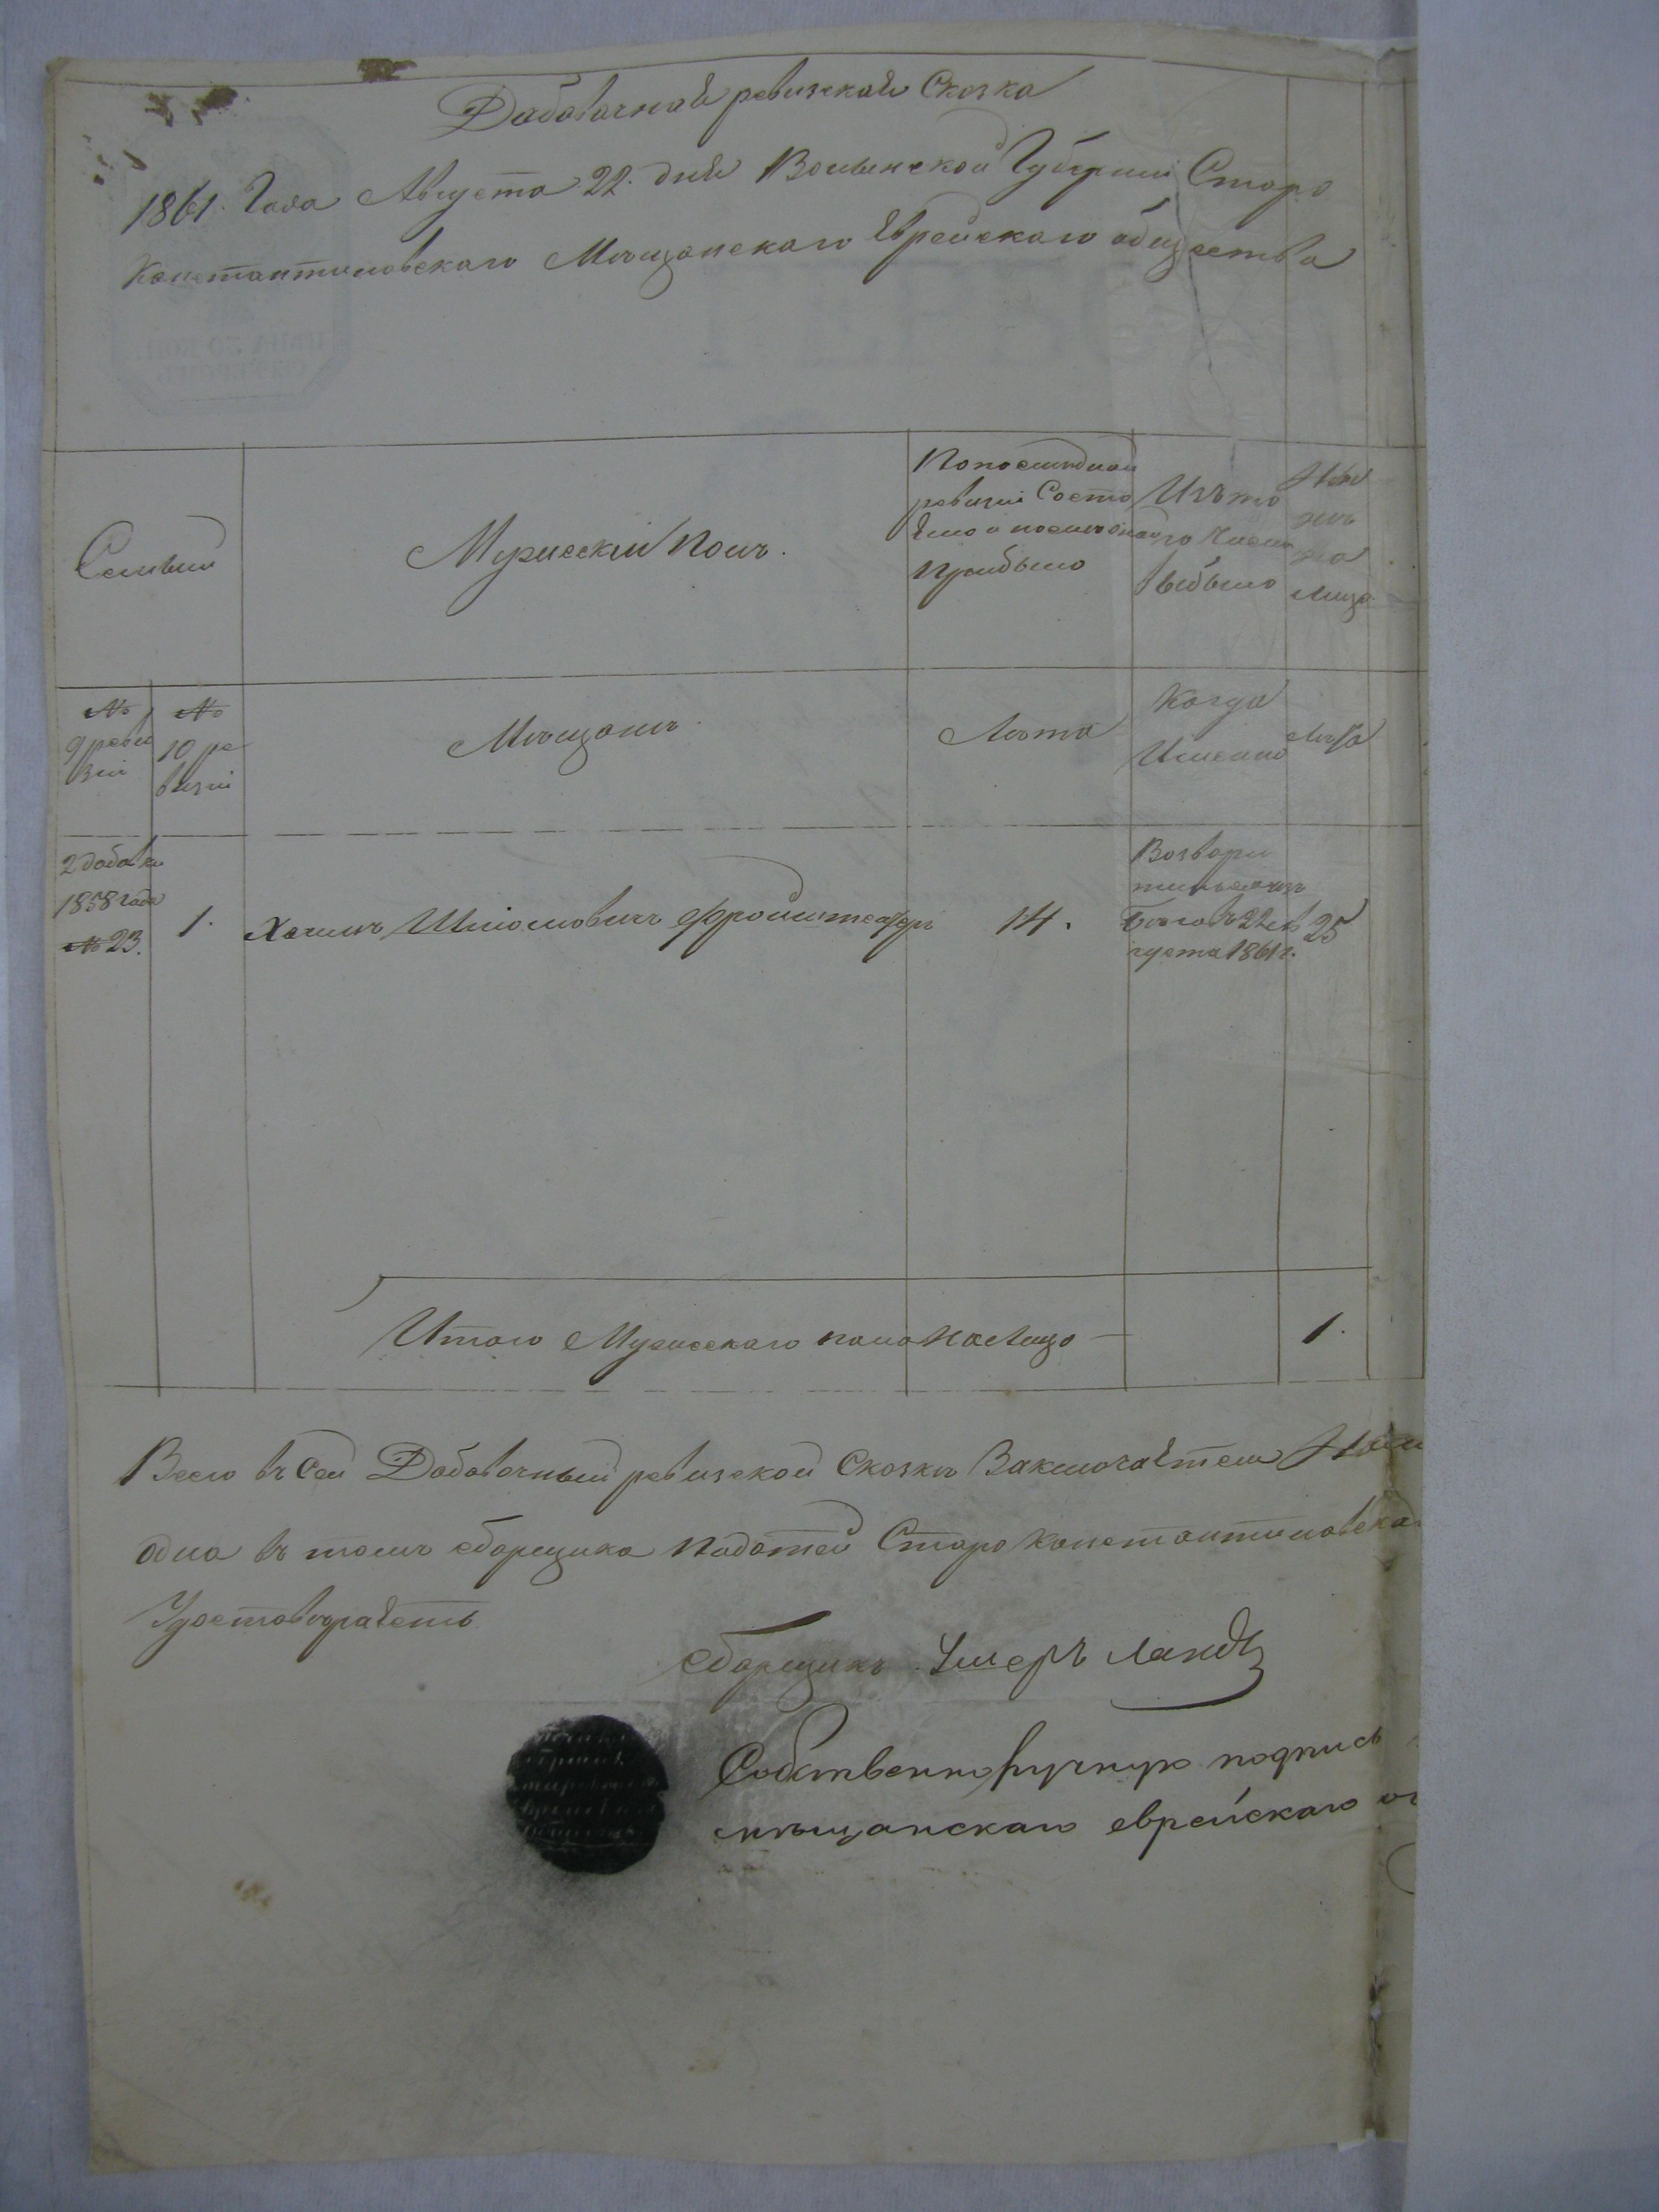 Добавочная ревизская Сказка
1861. Года Августа 22. дня Волынской Губернии Старо
Константиновскаго Мѣщанскаго Еврейскаго общества
Семьи
Мужескій Полъ.
По последней
ревизіи Состо
яло и после оной
Прибыло
Изъ то
го числа
выбыло
Ны
нѣ
на
лицо
№
9 реви
зіи
№
10 ре
визіи
Мѣщанъ.
Лѣта
Когда
Именно
Лѣта
2 добавки
1858 года
№ 23.
1.
Хаимъ Шліомовичъ
14.
Возвра
тился изъ
бѣговъ 22 ав
густа 1861 г.
25
Итого Мужескаго пола На Лицо
1.
Всего въ Сей Добавочный ревизской Сказкѣ Заключается
одна въ томъ сборщика Податей Старо Константиновска
Удостовѣряетъ
Сборщикъ Ушеръ Ландъ
Собственноручную подпись
мѣщанскаго еврейскаго